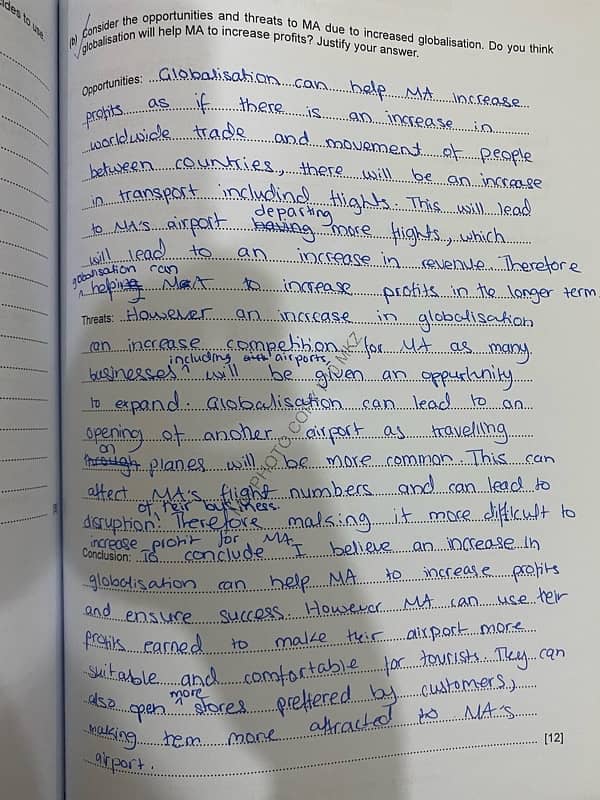 ides to use
(b) Consider the opportunities and threats to MA due to increased globalisation. Do you think
globalisation will help MA to increase profits? Justify your answer.
Opportunities: Globalisation can help MA increase
profits as if there is an increase in
worldwide trade and movement of people
between countries, there will be an increase
in transport includind flights. This will lead
departing
to MA's airport having more flights, which
will lead to an increase in revenue. Therefore
globalisation can
helping MA to increase profits in the longer term.
Threats: However an increase in globalisation
can increase competition for MA as many
including airports,
businesses will be given an oppurtunity
to expand. Globalisation can lead to an
opening of anoher airport as travelling
on
through planes will be more common. This can
affect MA's flight numbers and can lead to
of their business.
disruption! Therefore making it more difficult to
increase profit for MA.
Conclusion: To conclude I believe an increase in
globalisation can help MA to increase profits
and ensure success. However MA can use their
profits earned to make their airport more
suitable and comfortable for tourists. They can
more
also open stores preffered by customers,
making them more attracted to MA's
[12]
airport.